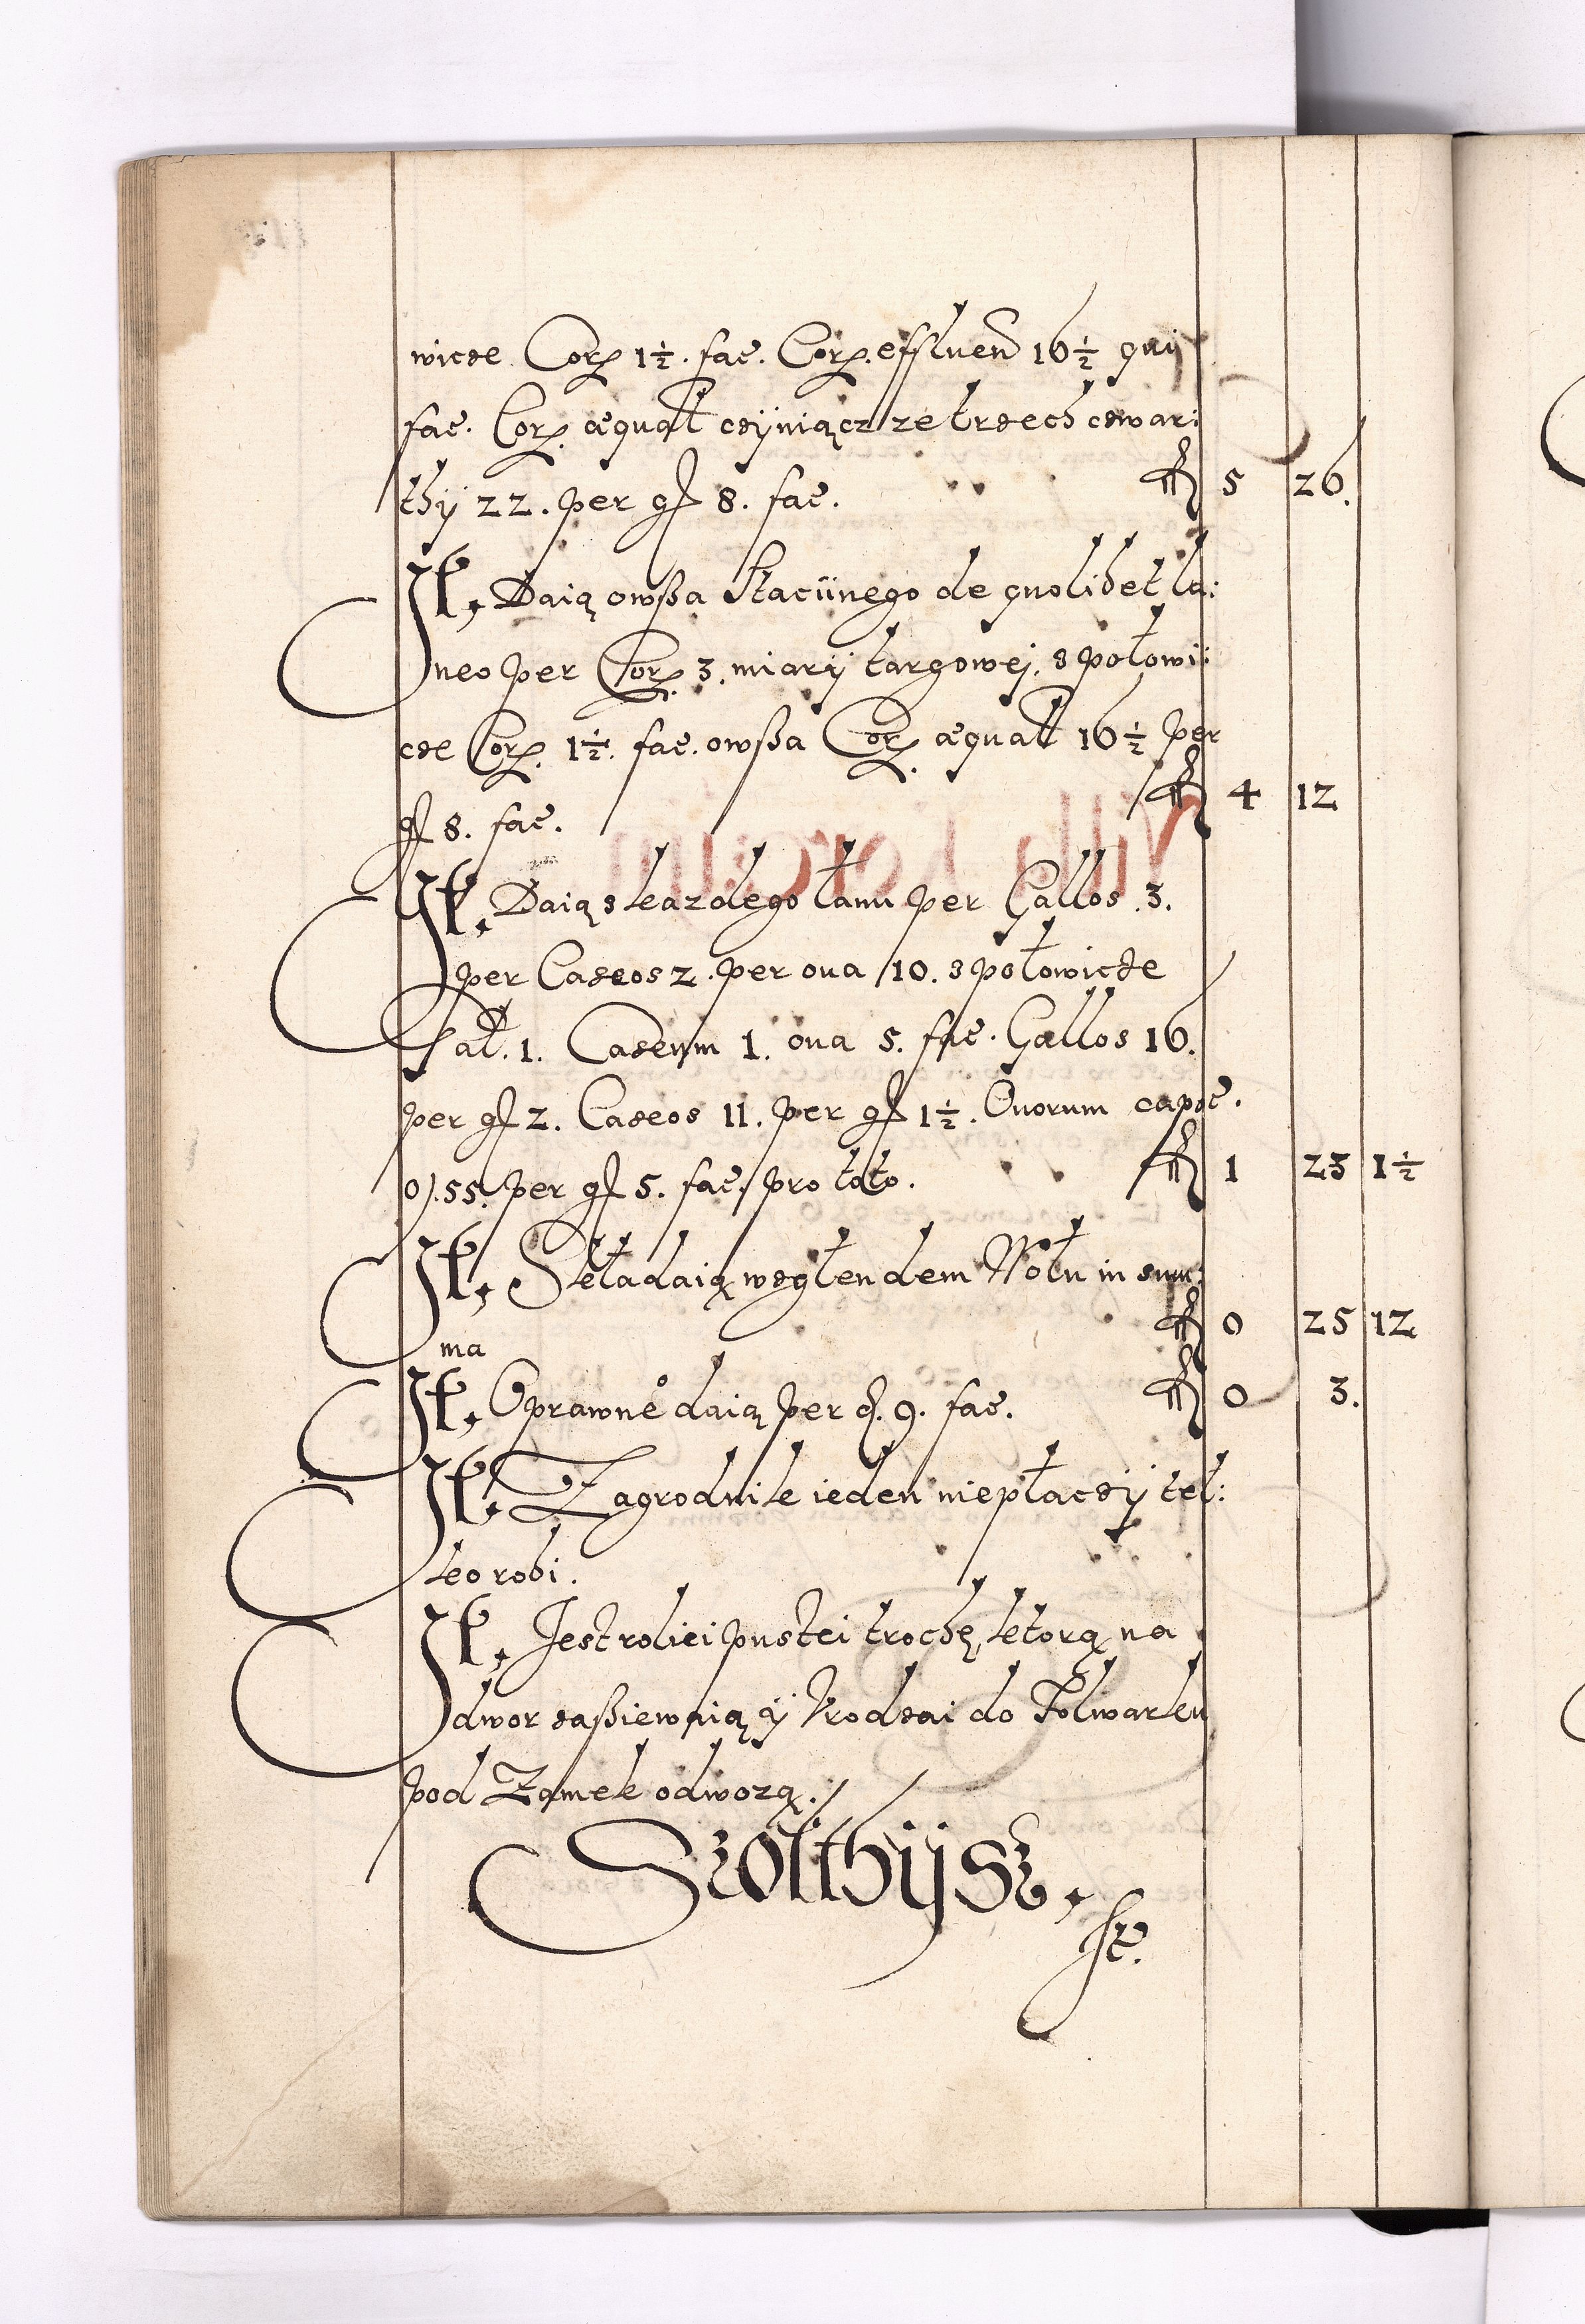 wicze Cor. 1½. fac. Cor. effluen 16½ qui
fac. Cor. æquat czÿniącz ze trzech czwar:
thÿ 22. per gs 8. fac. fl 5 26.
It, Daią owßa Staciinego de quolibet la:
neo per Cor. 3. miarÿ targowej. z połowi:
cze Cor. 1½. fac. owßa Cor. æquat 16½ per
gs 8. fac. fl 4 12
It, Daią z kazdego łanu per Gallos .3.
per Caseos 2. per oua 10. z połowicze
Gal. 1. Caseum 1. oua 5. fac. Gallos 16.
per gs 2. Caseos 11. per gs 1½. Ouorum capæ.
o). 55. per gs 5. fac. pro toto. fl 1 23 1½
It, Składaią wzglendem Wołu in sum:
ma fl 0 25 12
It, Oprawne daią per d. 9. fac. fl 0 3.
It, Zagrodnik ieden niepłaczÿ tel:
ko robi.
It, Jest roliei pustei trochę, ktorą na
dwor zaßiewaią ÿ Vrodzai do Folwarku
pod Zamek odwozą.
Szołthÿsz,
It.